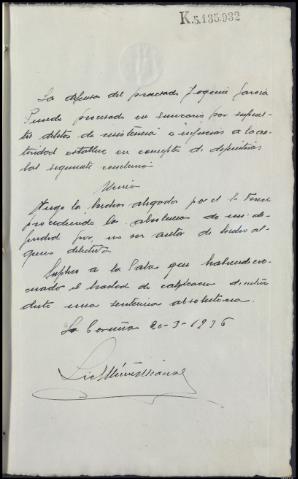 K.5.135.932
La defensa del procesado Eugenio García
procesado en sumario por supues-
tos delitos de resistencia e injurias a la au-
toridad establece en concepto de definitivas
las siguientes conclusiones
Única
Niego los hechos alegados por el Sr Fiscal
procediendo la absolución de mi de-
fendido por no ser autor de hecho al-
guno delictivo
Suplico a la Sala que habiendo eva-
cuado el traslado de calificación
dicte una sentencia absolutoria.
La Coruña 20-3-1936